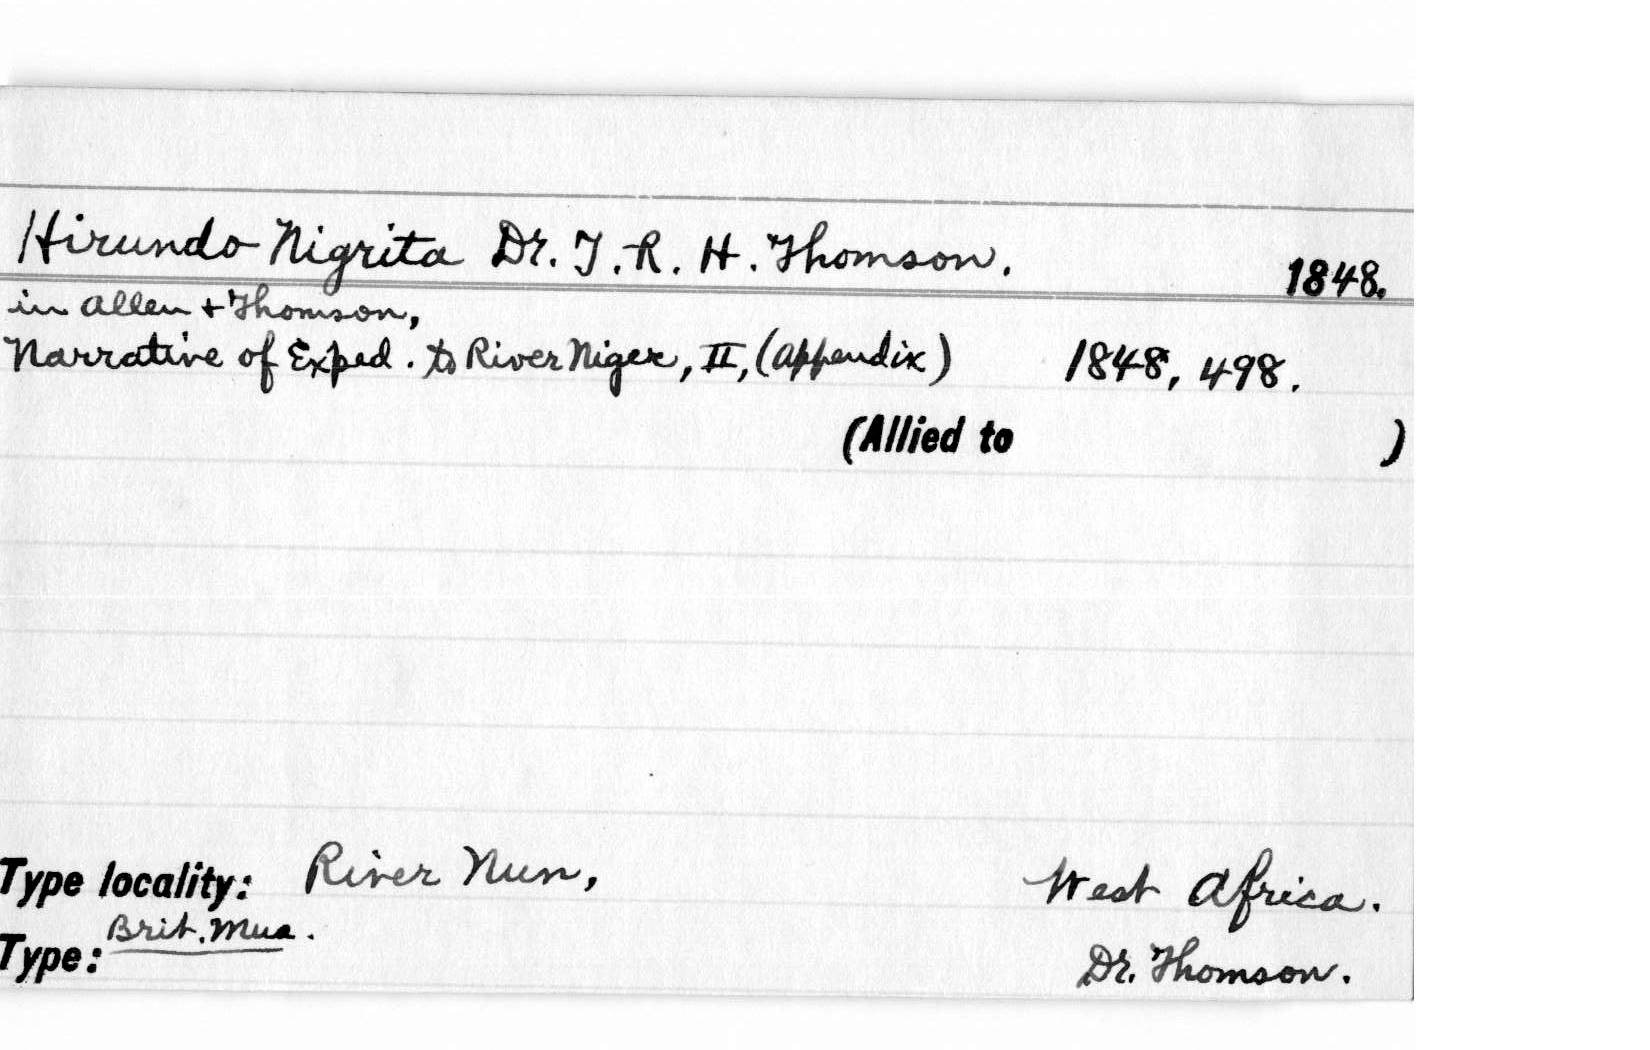 Hirundo Nigrita Dr. T. R. H. Thomson. 1848.
in Allen + Thomson,
Narrative of Exped. to River Niger, II, (appendix) 1848, 498.
(Allied to )
Type locality: River Nun, West Africa.
Type: Brit. Mus. Dr. Thomson.